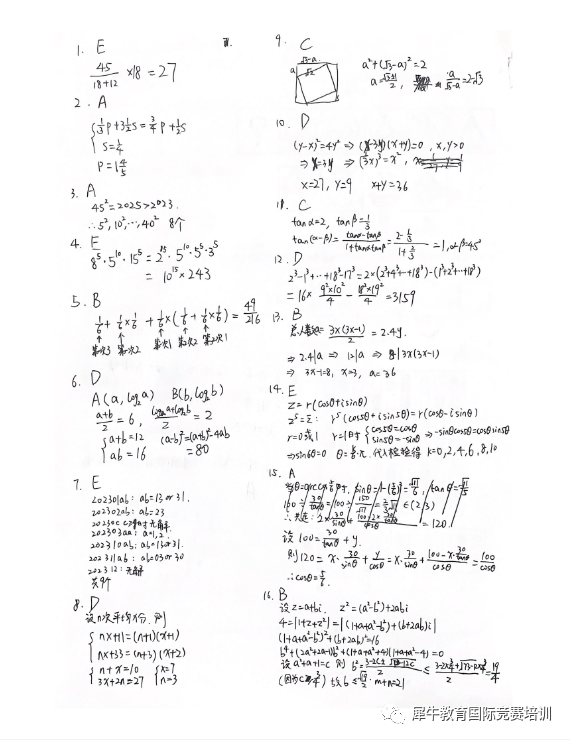 1. E
45/(18+12) ×18 = 27
2. A
{ 1/3 P+3 1/2 S = 3/4 P + 1/2 S
S = 1/4
P = 1 4/5
3. A
45² = 2025 > 2023.
∴ 5², 10², …, 40² 8个
4. E
8⁵·5¹⁰·15⁵ = 2¹⁵·5¹⁰·5⁵·3⁵
= 10¹⁵×243
5. B
1/6 + 1/6×1/6 + 1/6×(1/6+1/6×1/6) = 49/216
6. D
A(a, log₂a) B(b, log₂b)
(a+b)/2 = 6, (log₂a+log₂b)/2 = 2
{ a+b=12 (a-b)²=(a+b)²-4ab
ab = 16 = 80
7. E
202301ab: ab=13 or 31.
202302ab: ab=23
202303aa: a=1,2
202310ab: ab=13or31.
202311ab: ab=03 or 30
202312: 无解
共9个
8. D
设n次平均x分, 则
{ nx+11=(n+1)(x+1)
nx+33=(n+3)(x+2)
{ n+x=10 { x=7
3x+2n=27 n=3
9. C
√3-a
a
√2
a²+(√3-a)²=2
10. D
(y-x)²=4y² ⇒ (x-3y)(x+y)=0, x,y>0
⇒ x=3y
x=27, y=9 x+y=36
11. C
tanα=2, tanβ=1/3
tan(α-β) = (tanα-tanβ)/(1+tanαtanβ) = (2-1/3)/(1+2/3) = 1, α-β=45°
12. D
2³-1³+…+18³-17³ = 2×(2³+4³+…+18³)-(1³+2³+…+18³)
= 16× 9²×10²/4 - 18²×19²/4 = 3159
13. B
总人数 = 3x(3x-1)/2 = 2.4y.
⇒ 3x-1=8, x=3, a=36
14. E
z = r(cosθ+isinθ)
z⁵=z̄: r⁵(cos5θ+isin5θ)=r(cosθ-isinθ)
r=0或1 r=1时 { cos5θ=cosθ
sin5θ=-sinθ ⇒ -sinθcos5θ=cosθsin5θ
⇒ sin6θ=0 代入检验得 k=0,2,4,6,8,10
15. A
设 100 = 30/tanθ + y.
则 120 = x·30/sinθ + y/cosθ = x·30/sinθ + (100-x·30/tanθ)/cosθ = 100/cosθ
∴ cosθ = 5/6.
16. B
设 z=a+bi. z²=(a²-b²)+2abi
4=|1+z+z²|=|(1+a+a²-b²)+(b+2ab)i|
(1+a+a²-b²)²+(b+2ab)²=16
b⁴+(2a²+2a-1)b²+(1+a+a²+4)(1+a+a²-4)=0
m+n=21
犀牛教育国际竞赛培训